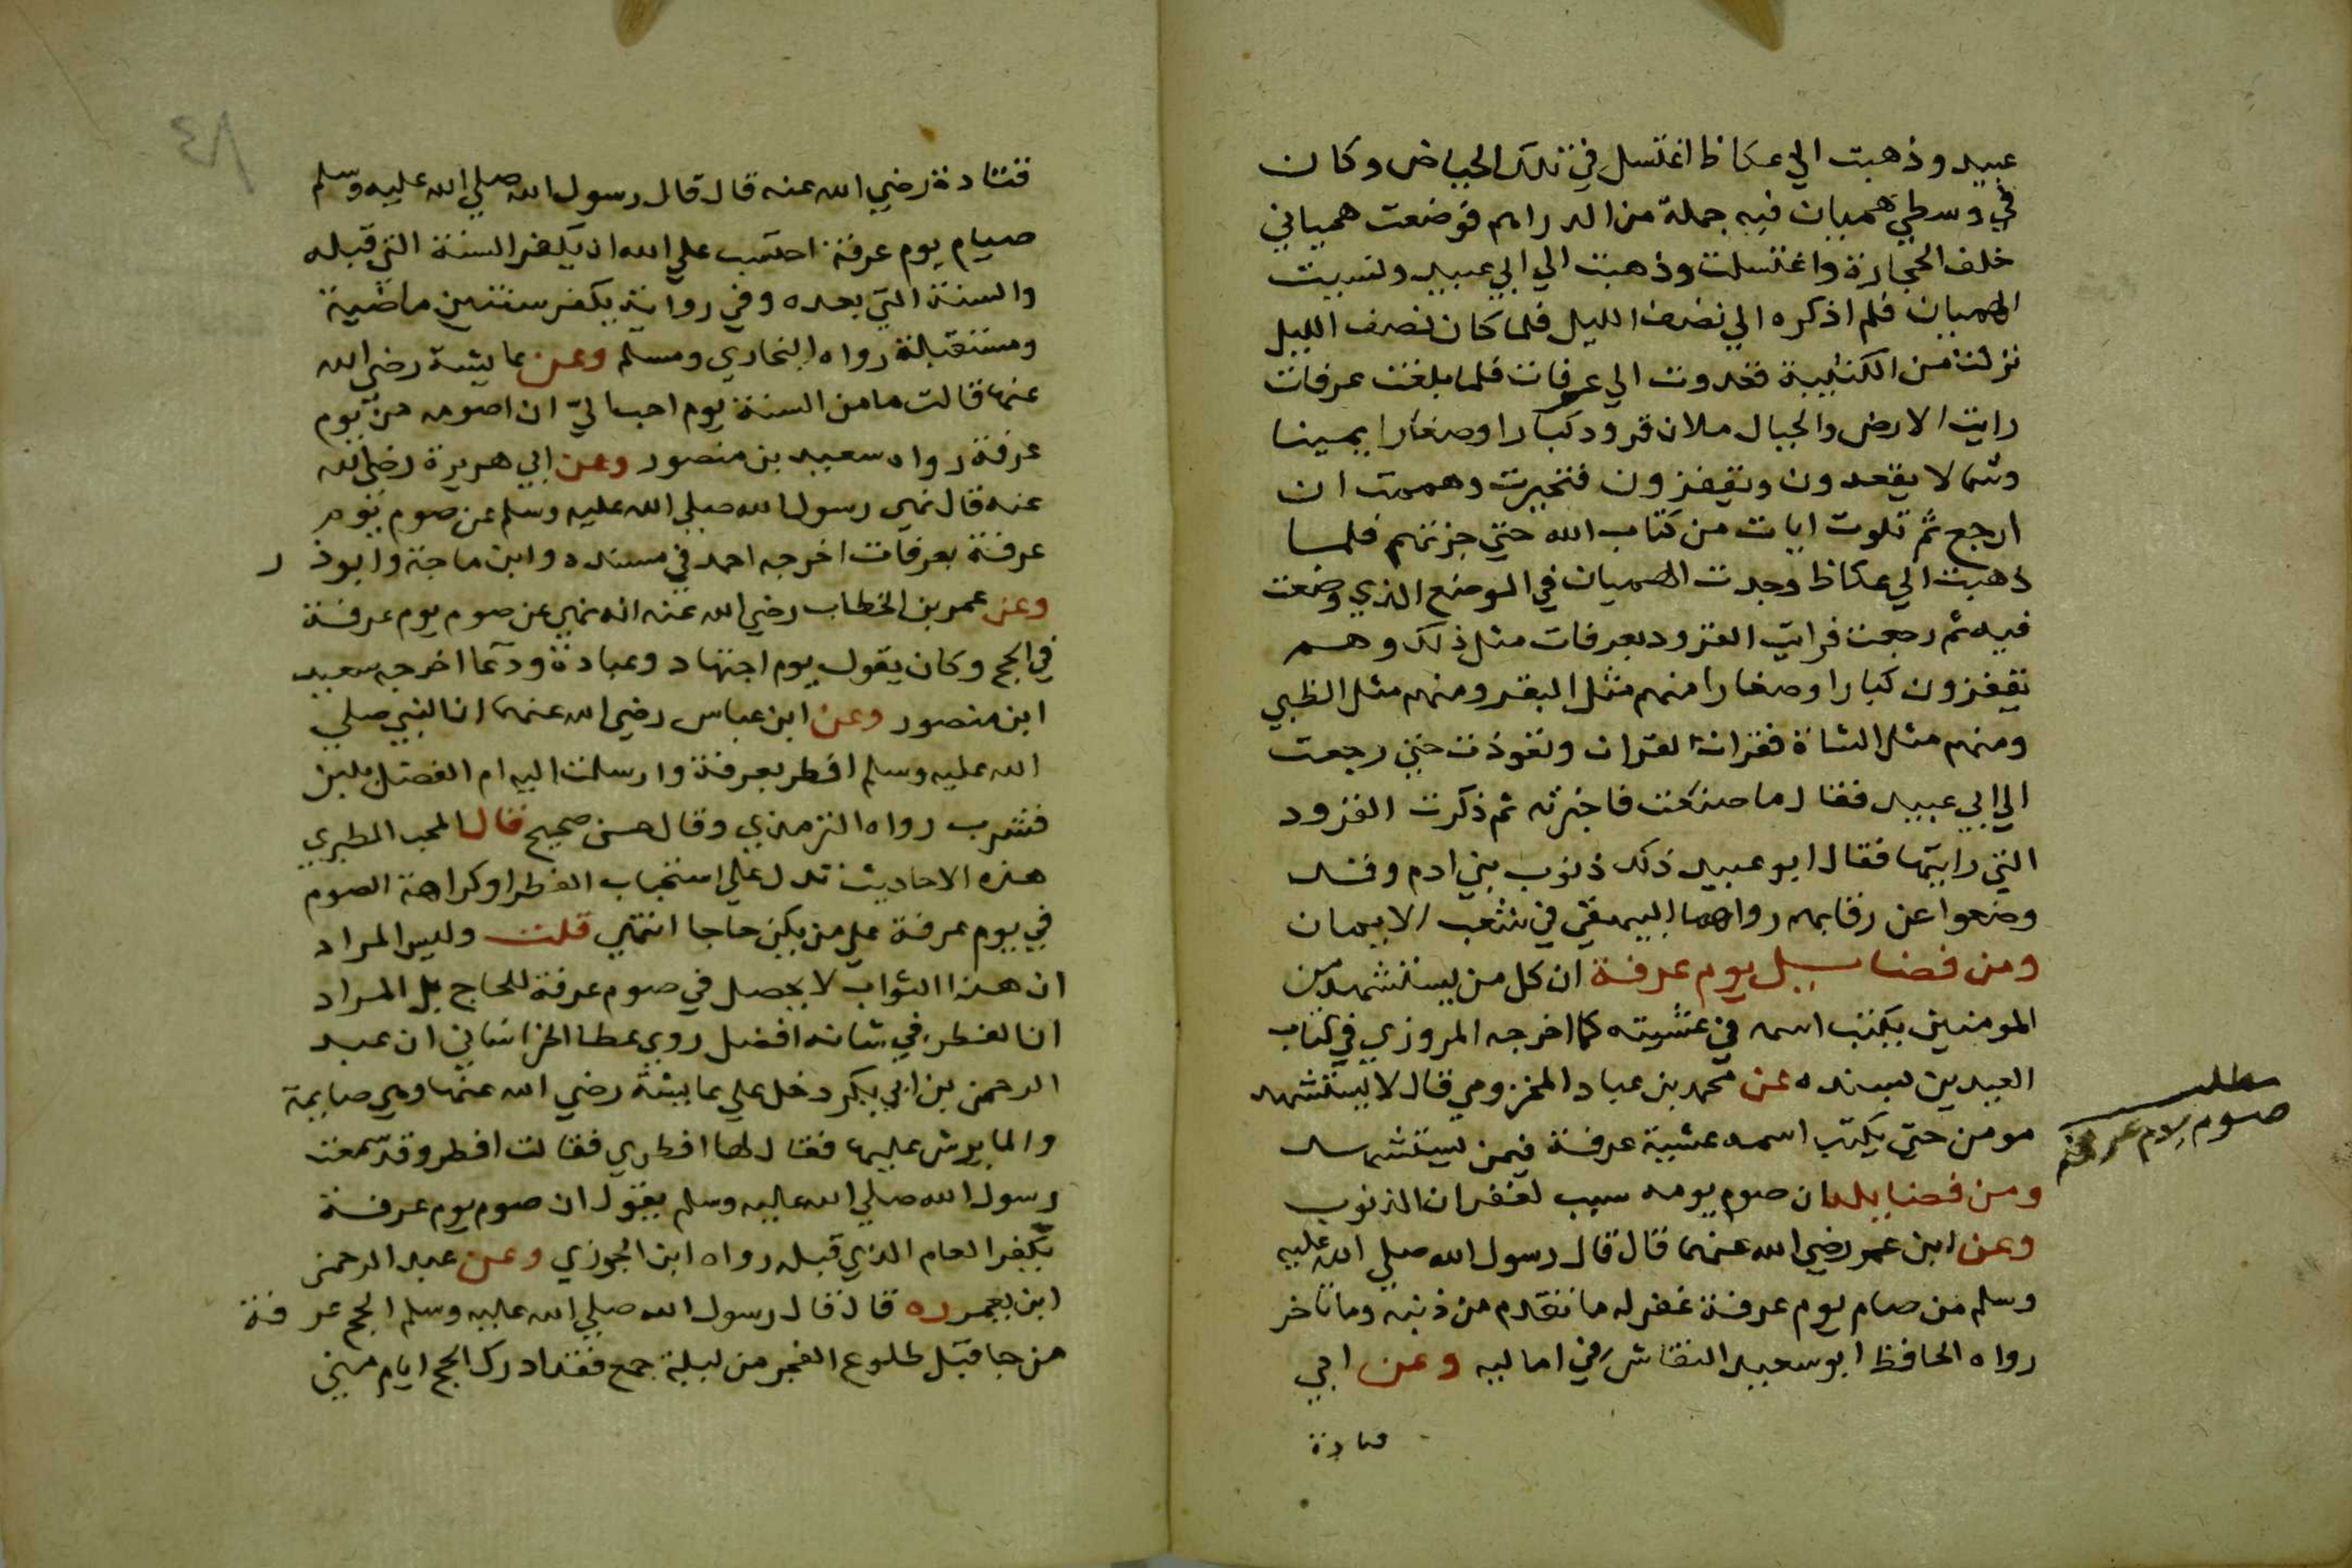 عبيد وذهبت الي عكاظ اغتسل في تلك الحياض وكان
في وسطي هميان فيه جملة من الدراهم فوضعت همياني
خلف الحجارة واغتسلت وذهبت الي ابي عبيد ونسيت
الهميان فلم اذكره الي نصف الليل فلما كان نصف الليل
نزلت من الكثيبة فغدوت الي عرفات فلما بلغت عرفات
رايت الارض والجبال ملان قرود كبارا وصغارا يمينا
وشمالا يقعدون ويقفزون فتحيرت وهممت ان
ارجع ثم تلوت ايات من كتاب الله حتي جزتهم فلما
ذهبت الي عكاظ وجدت الهميان في الموضع الذي وضعت
فيه ثم رجعت فرايت القرود بعرفات مثل ذلك وهم
يقفزون كبارا وصغارا منهم مثل البقر ومنهم مثل الظبي
ومنهم مثل الشاة فقرات القران وتعوذت حتي رجعت
الي ابي عبيد فقال ما صنعت فاخبرته ثم ذكرت القرود
التي رايتها فقال ابو عبيد ذلك ذنوب بني ادم وقد
وضعوا عن رقابهم رواهما البيهقي في شعب الايمان
ومن فضايل يوم عرفة ان كل من يستشهد من
المومنين يكتب اسمه في عشيته كما اخرجه المروزي في كتاب
العيدين بسنده عن محمد بن عباد المخزومي قال لا يستشهد
مومن حتي يكتب اسمه عشية عرفة فيمن يستشهد
ومن فضايله ان صوم يومه سبب لغفران الذنوب
وعن ابن عمر رضي الله عنهما قال قال رسول الله صلي الله عليه
وسلم من صام يوم عرفة غفر له ما تقدم من ذنبه وما تاخر
رواه الحافظ ابو سعيد النقاش في اماليه وعن ابي
قتادة
مطلب
صوم يوم عرفة
قتادة رضي الله عنه قال قال رسول الله صلي الله عليه وسلم
صيام يوم عرفة احتسب علي الله ان يكفر السنة التي قبله
والسنة التي بعده وفي رواية يكفر سنتين ماضية
ومستقبلة رواه البخاري ومسلم وعن عايشة رضي الله
عنها قالت ما من السنة يوم احب اليّ ان اصومه من يوم
عرفة رواه سعيد بن منصور وعن ابي هريرة رضي الله
عنه قال نهي رسول الله صلي الله عليه وسلم عن صوم يوم
عرفة بعرفات اخرجه احمد في مسنده وابن ماجة وابوذر
وعن عمر بن الخطاب رضي الله عنه انه نهي عن صوم يوم عرفة
في الحج وكان يقول يوم اجتهاد وعبادة ودعا اخرجه سعيد
ابن منصور وعن ابن عباس رضي الله عنهما ان النبي صلي
الله عليه وسلم افطر بعرفة وارسلت اليه ام الفضل بلبن
فشرب رواه الترمذي وقال حسن صحيح قال المحب الطبري
هذه الاحاديث تدل علي استحباب الفطر او كراهة الصوم
في يوم عرفة علي من يكن حاجا انتهي قلت وليس المراد
ان هذا الثواب لا يحصل في صوم عرفة للحاج بل المراد
ان الفطر في شانه افضل روي عطا الخراساني ان عبد
الرحمن بن ابي بكر دخل علي عايشة رضي الله عنها وهي صايمة
والما يرش عليها فقال لها افطري فقالت افطر وقد سمعت
رسول الله صلي الله عليه وسلم يقول ان صوم يوم عرفة
يكفر العام الذي قبله رواه ابن الجوزي وعن عبد الرحمن
ابن يعمر ره قال قال رسول الله صلي الله عليه وسلم الحج عرفة
من جا قبل طلوع الفجر من ليلة جمع فقد ادرك الحج ايام مني
٨٣